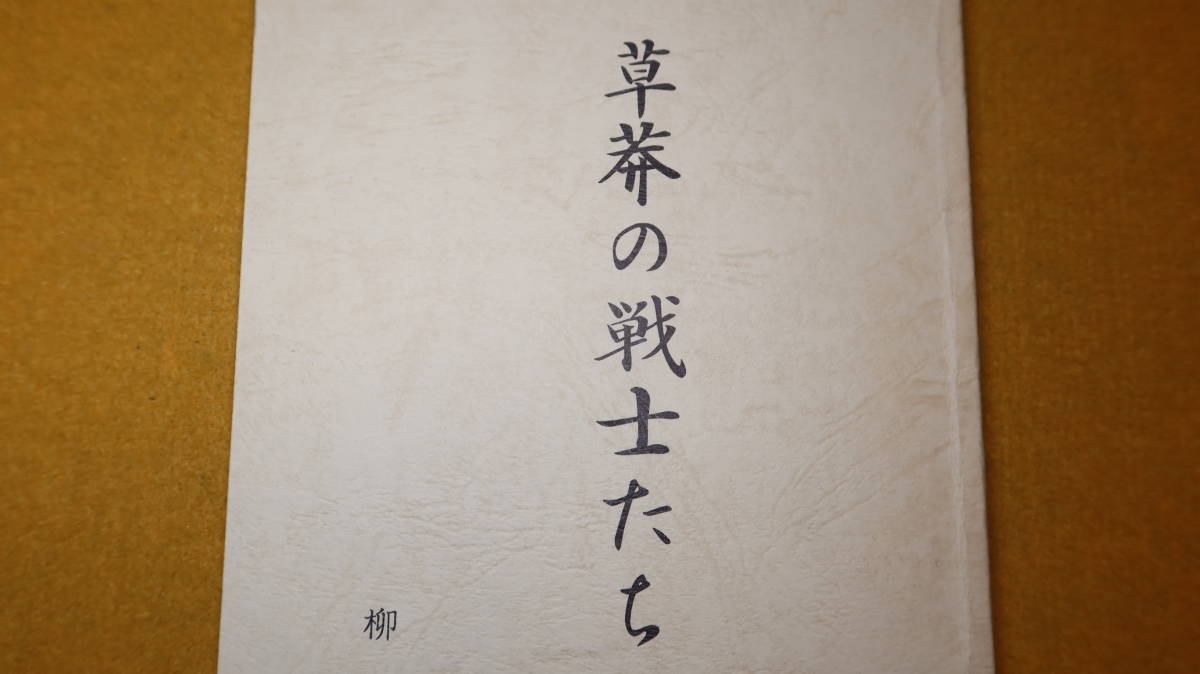 草莽の戦士たち
柳